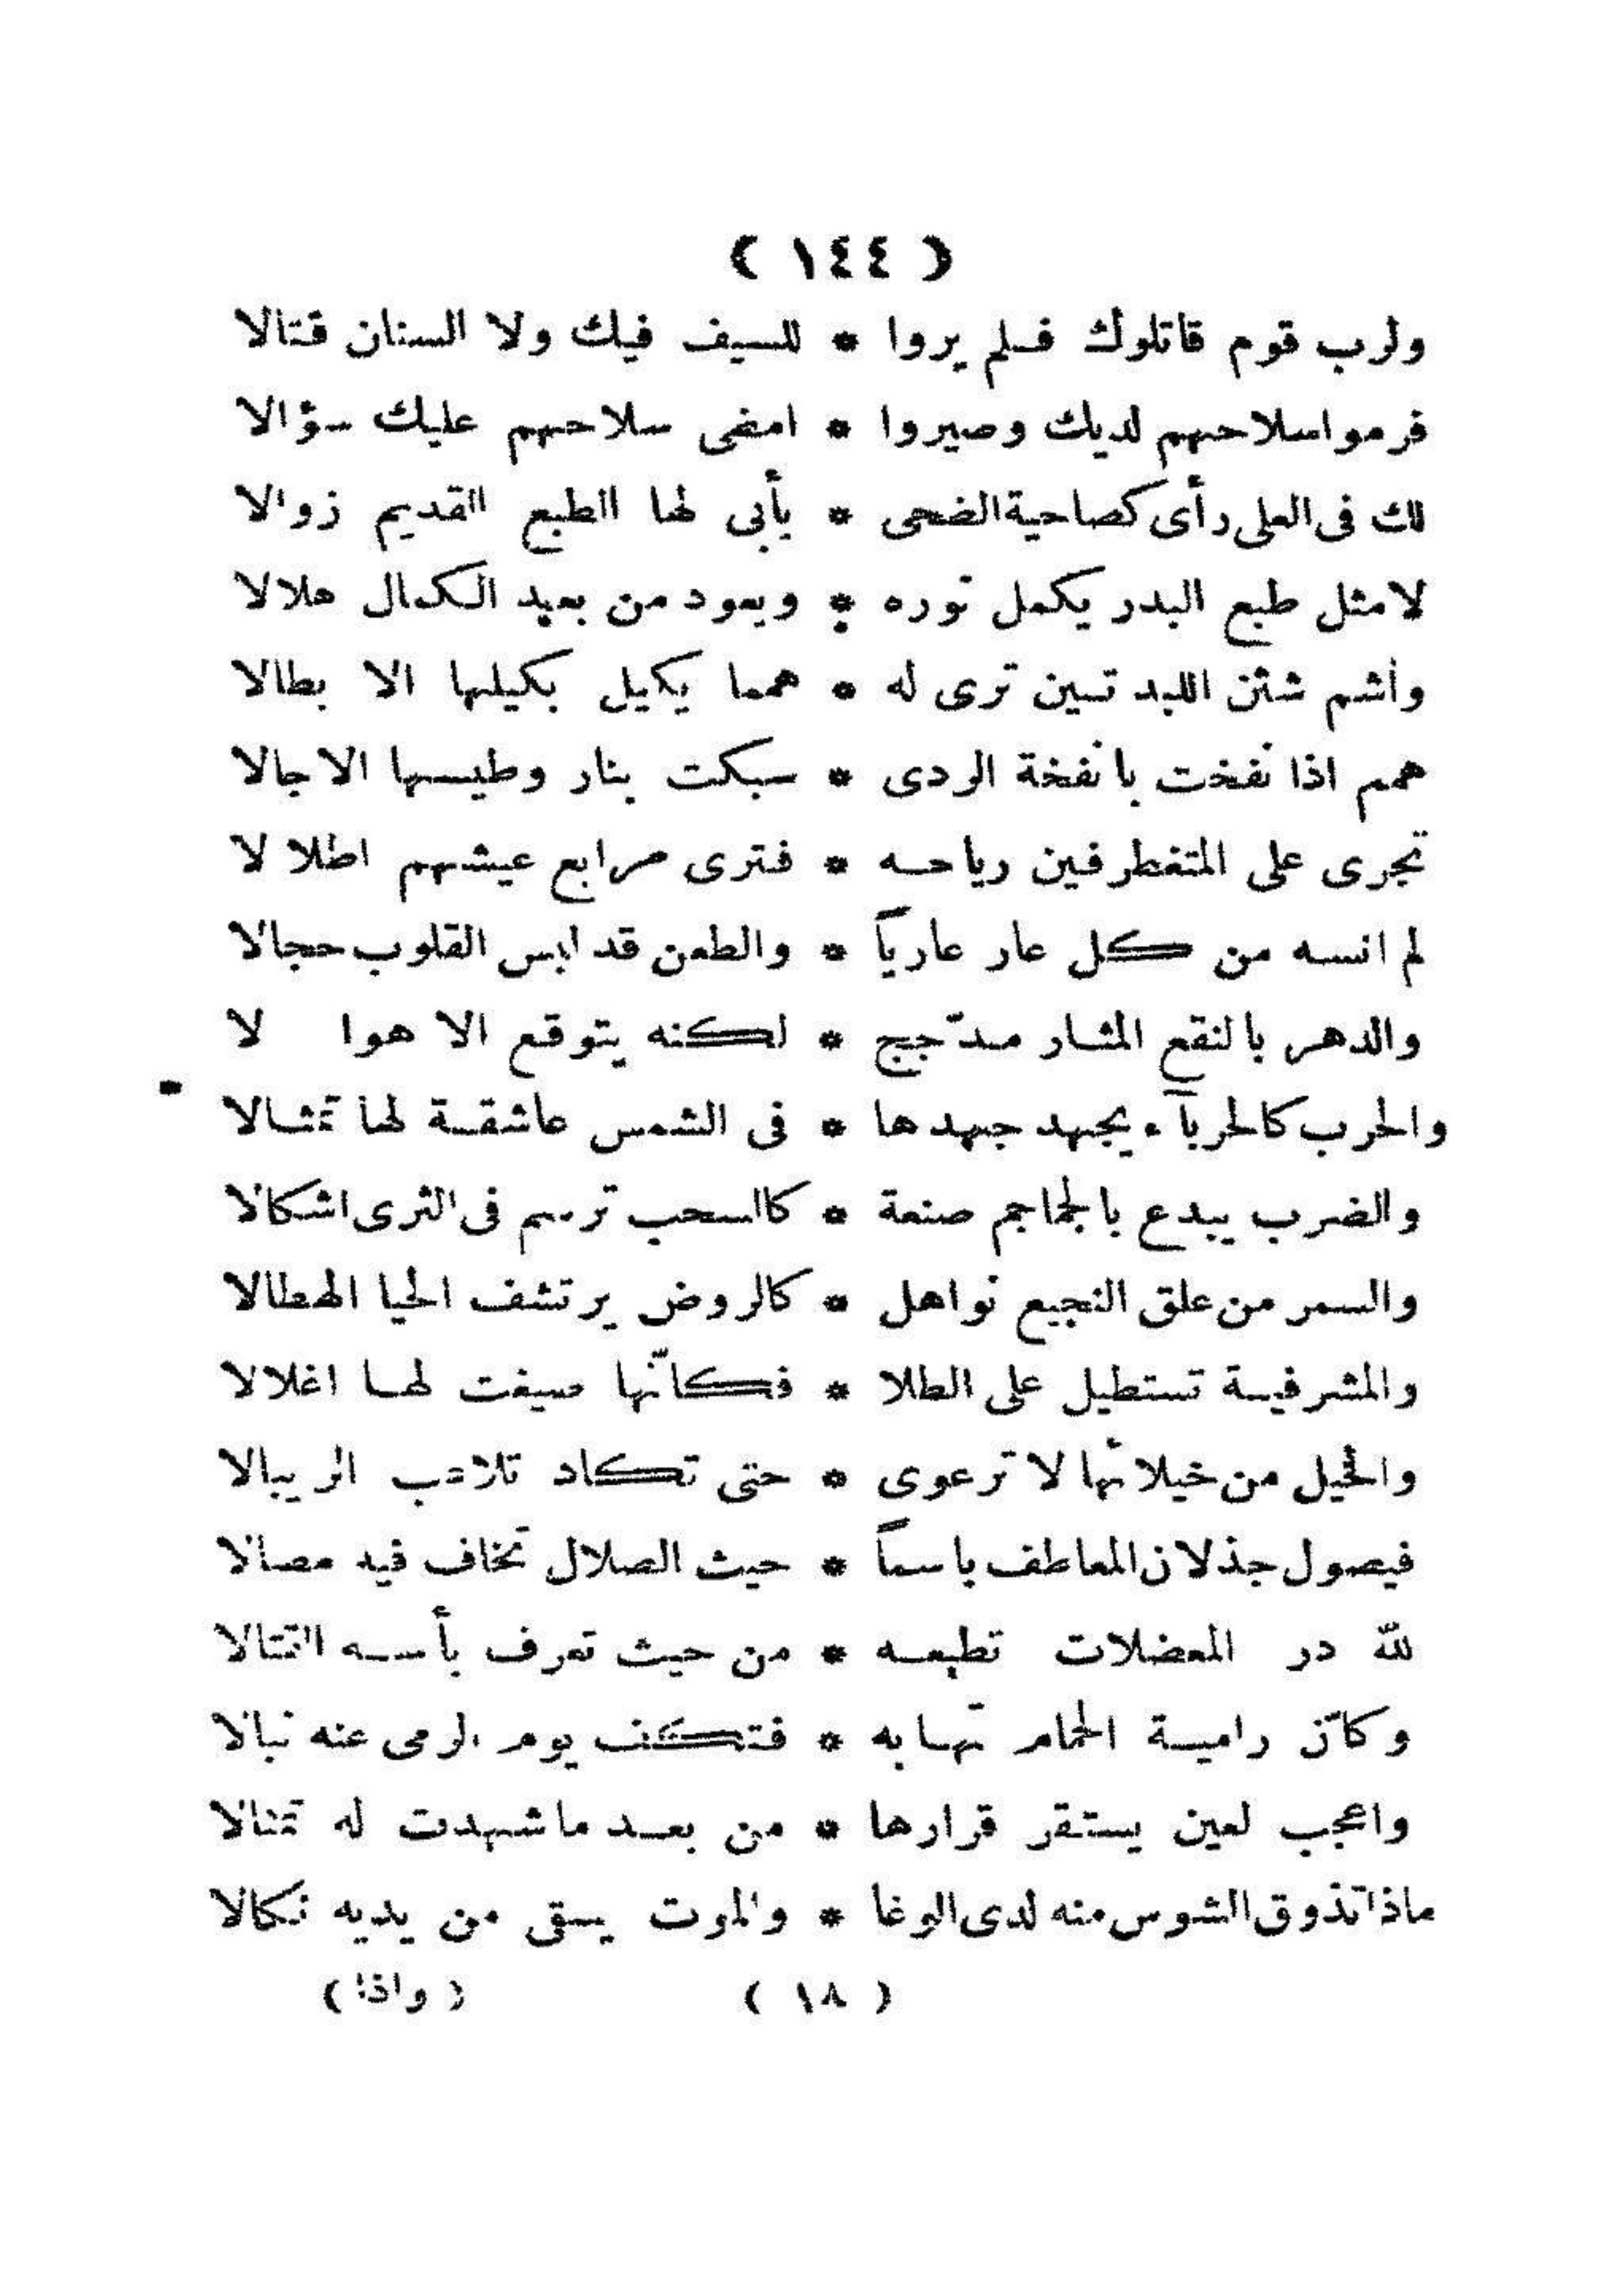 ( ١٤٤ )
ولرب قوم قاتلوك فلم يروا * للسيف فيك ولا السنان قتالا
فرموا سلاحهم لديك وصيروا * امضى سلاحهم عليك سؤالا
لك فى العلى رأى كصاحية الضحى * يأبى لها الطبع القديم زوالا
لا مثل طبع البدر يكمل نوره * ويعود من بعيد الكمال هلالا
واشم شثن اللبد تسين ترى له * همما يكيل بكيلها الا بطالا
همم اذا نفخت بانفخة الردى * سبكت بنار وطيسها الاجالا
تجرى على المتغطرفين رياحه * فترى مرابع عيشهم اطلالا
لم انسه من كل عار عارياً * والطعن قد لبس القلوب حجالا
والدهر بالنقع المثار مدّجج * لكنه يتوقع الا هوا لا
والحرب كالحربآء يجهد جهدها * فى الشمس عاشقة لها تمثالا
والضرب يبدع بالجماجم صنعة * كالسحب ترسم فى الثرى اشكالا
والسمر من علق النجيع نواهل * كالروض يرتشف الحيا الهطالا
والمشرفية تستطيل على الطلا * فكانّها صيغت لها اغلالا
والخيل من خيلائها لا ترعوى * حتى تكاد تلاعب الريبالا
فيصول جذلان المعاطف باسماً * حيث الصلال تخاف فيه مصالا
لله در المعضلات تطبعه * من حيث تعرف بأسه القتالا
وكانّ رامية الحمام تهابه * فتكف يوم الرمى عنه نبالا
واعجب لعين يستقر قرارها * من بعد ما شهدت له تمثالا
ماذا تذوق الشوس منه لدى الوغا * والموت يسقى من يديه نكالا
( ١٨ ) ( واذا )